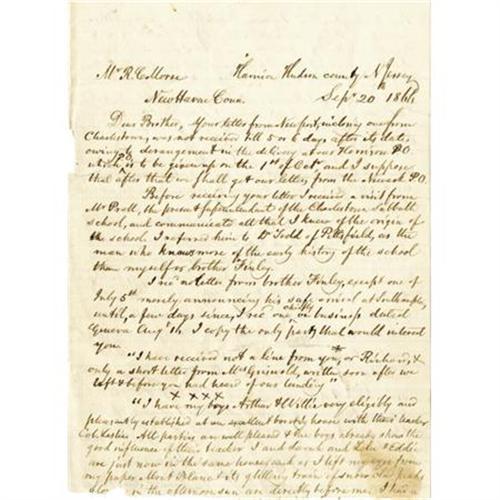 Mr R.C. Morse Harrison Hudson county N Jersey
New Haven Conn. Sepr 20th 1866
Dear Brother, Your letter from Newport, inclosing one from
Charlestown, was not received till 5 or 6 days after its date,
owing to derangement in the delivery at our Harrison P.O.
which P.O. is to be given up on the 1st of Oct and I suppose
that after that we shall get our letters from the Newark P.O.
Before receiving your letter I received a visit from
Mr Pratt, the present superintendent of the Charlestown Sabbath
school, and communicated all that I knew of the origin of
the school. I referred him to Dr Todd of Pittsfield, as the
man who knows more of the early history of the school
than myself or brother Finley.
I recd no letter from brother Finley, except one of
July 5th merely announcing his safe arrival at Southampton,
until, a few days since, I recd one, chiefly on business dated
Geneva Aug 14. I copy the only part that would interest
you.
"I have received not a line from you,* or Richard, &
only a short letter from Mr Griswold, written soon after we
left & before you had heard of our landing"
x x x x
"I have my boys Arthur & Willie very eligibly and
pleasantly established at an excellent boarding house with their teacher
All parties are well pleased & the boys already show the
good influence of their teacher I and Sarah and Lila & Eddie
are just now in the same house and as I lift my eyes from
my paper Mont Blanc & its glittering train of snow clad peaks
in the afternoon sun are directly before me. I have